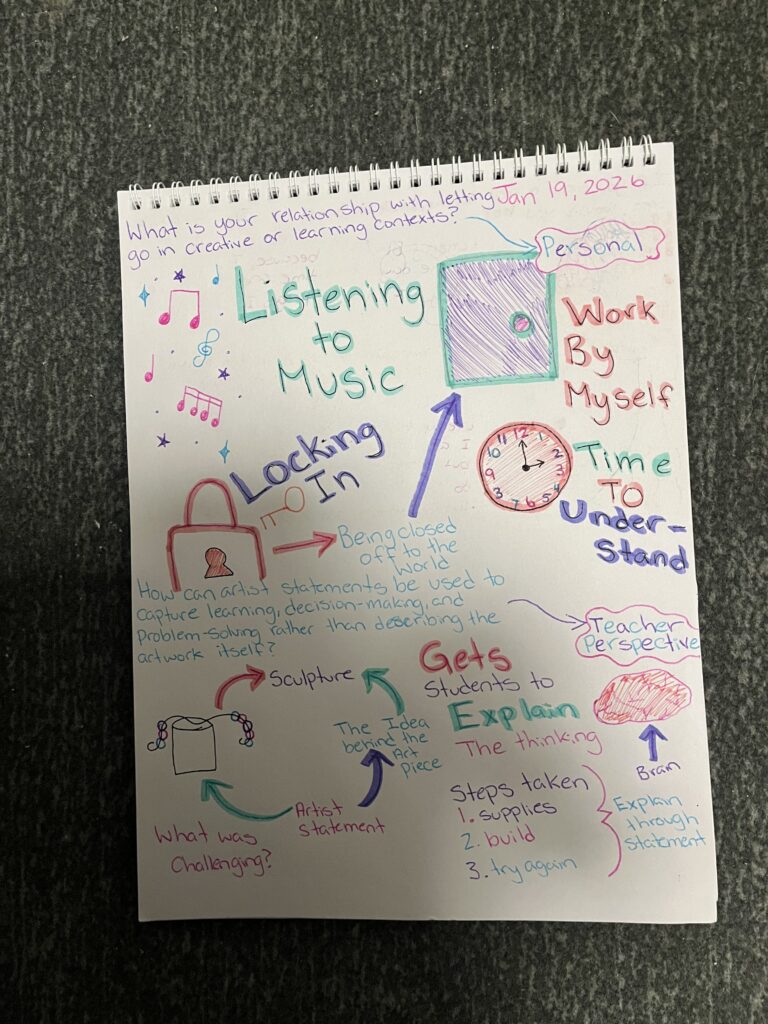 What is your relationship with letting
go in creative or learning contexts?
Jan 19, 2026
Personal
Listening
to
Music
Work
By
Myself
Locking
In
12
1
2
3
4
5
6
7
8
9
10
11
Time
TO
Under-
Stand
Being closed
off to the
World
How can artist statements be used to
capture learning, decision-making, and
problem-solving rather than describing the
artwork itself?
Teacher
Perspective
Sculpture
The Idea
behind the
Art
piece
Artist
Statement
What was
Challenging?
Gets
Students to
Explain
The thinking
Brain
Steps taken
1. supplies
2. build
3. try again
Explain
through
Statement